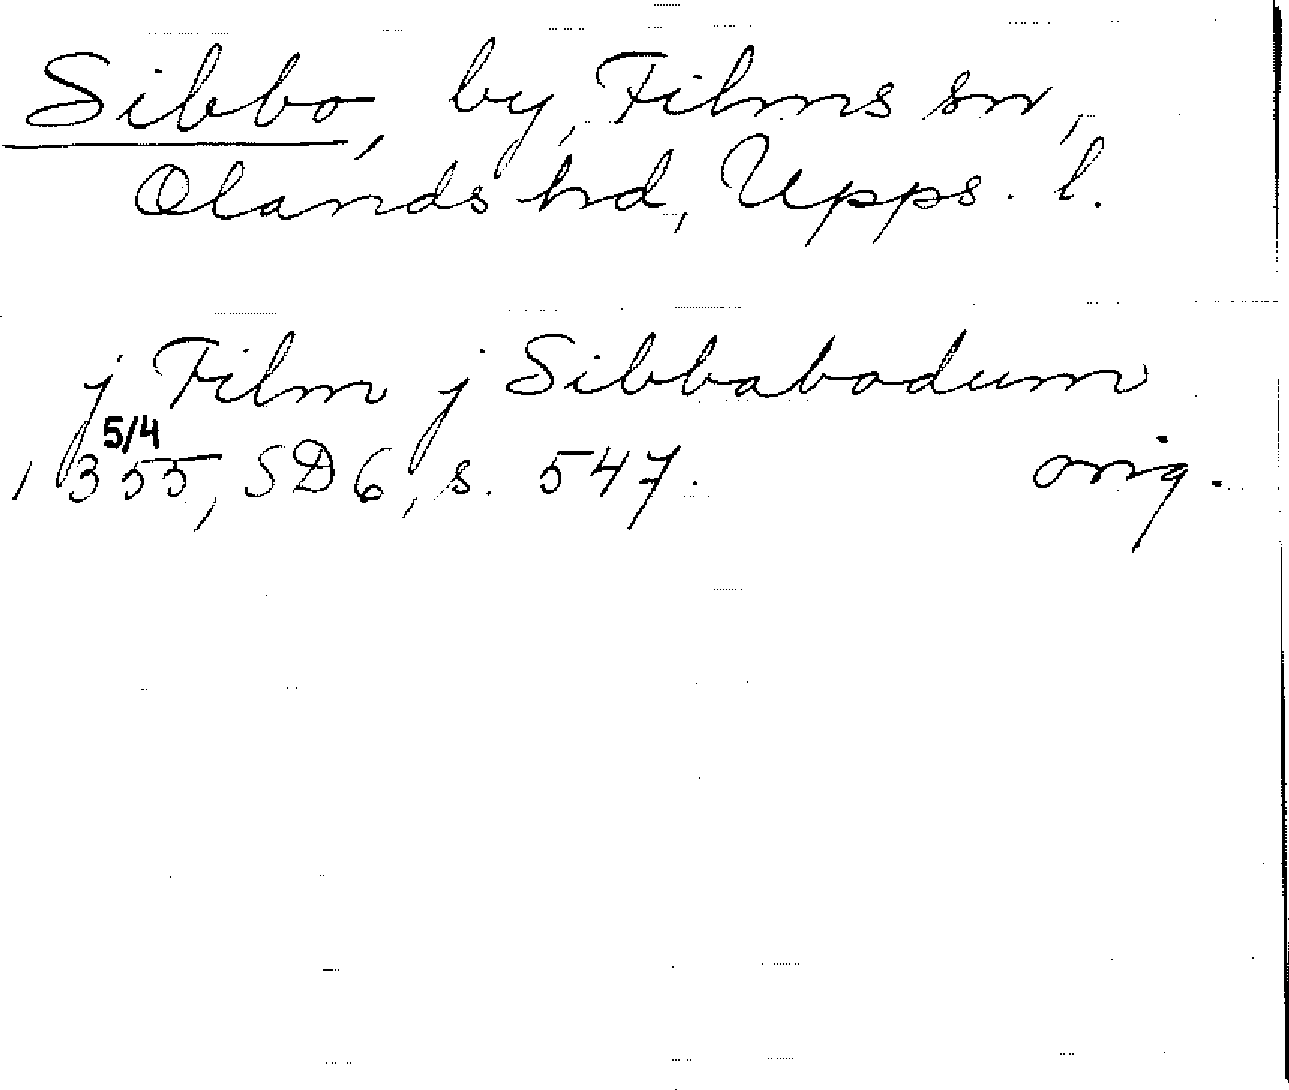 Sibbo, by, Films sn,
Olands hd, Upps. l.
j Film j Sibbabodum
5/4
1355, SD6, s. 547. orig.